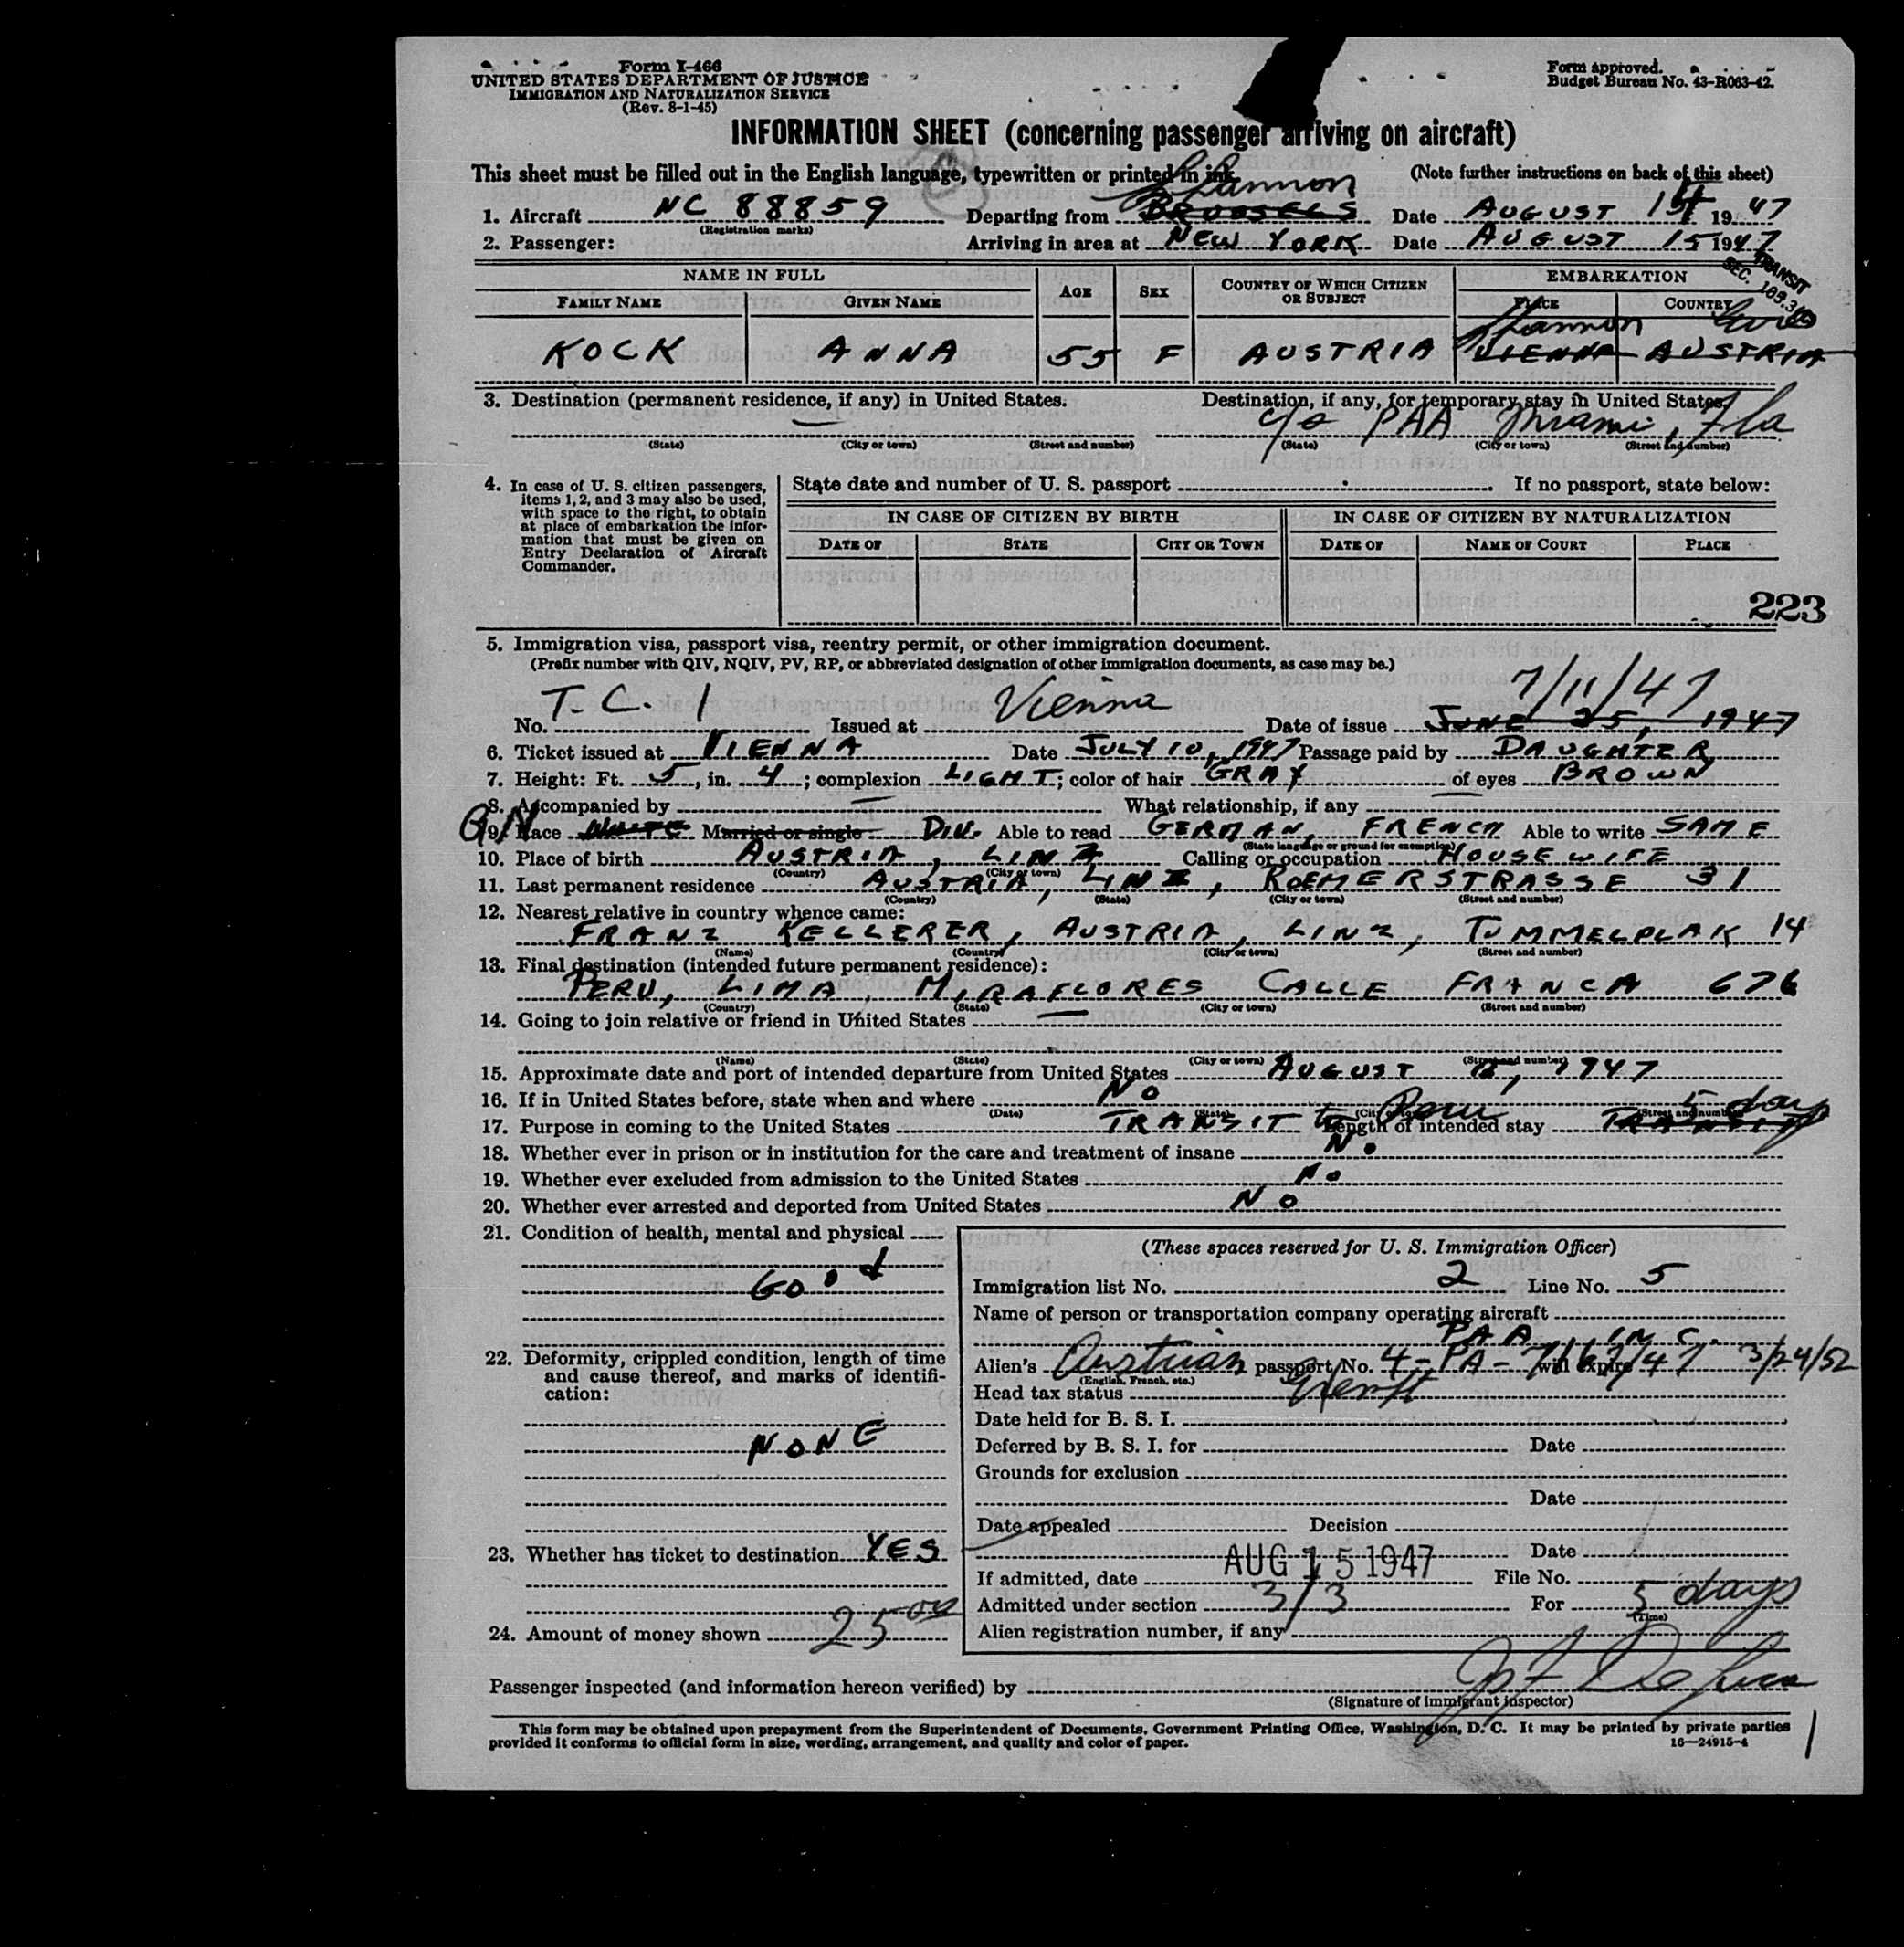 Form I-466
UNITED STATES DEPARTMENT OF JUSTICE
IMMIGRATION AND NATURALIZATION SERVICE
(Rev. 8-1-45)
Form approved.
Budget Bureau No. 43-R063-42.
INFORMATION SHEET (concerning passenger arriving on aircraft)
This sheet must be filled out in the English language, typewritten or printed in ink. (Note further instructions on back of this sheet)
Shannon
1. Aircraft NC 88859 Departing from BRUSSELS Date AUGUST 19 47
(Registration marks)
2. Passenger: Arriving in area at NEW YORK Date AUGUST 15 1947
TRANSIT
SEC.
NAME IN FULL AGE SEX COUNTRY OF WHICH CITIZEN OR SUBJECT EMBARKATION
FAMILY NAME GIVEN NAME PLACE COUNTRY
Shannon
KOCK ANNA 55 F AUSTRIA VIENNA AUSTRIA
3. Destination (permanent residence, if any) in United States. Destination, if any, for temporary stay in United States.
— c/o PAA Miami, Fla
(State) (City or town) (Street and number) (State) (City or town) (Street and number)
4. In case of U. S. citizen passengers, items 1, 2, and 3 may also be used, with space to the right, to obtain at place of embarkation the information that must be given on Entry Declaration of Aircraft Commander.
State date and number of U. S. passport If no passport, state below:
IN CASE OF CITIZEN BY BIRTH IN CASE OF CITIZEN BY NATURALIZATION
DATE OF STATE CITY OR TOWN DATE OF NAME OF COURT PLACE
223
5. Immigration visa, passport visa, reentry permit, or other immigration document.
(Prefix number with QIV, NQIV, PV, RP, or abbreviated designation of other immigration documents, as case may be.)
7/11/47
No. T.C. 1 Issued at Vienna Date of issue JUNE 25, 1947
6. Ticket issued at VIENNA Date JULY 10, 1947 Passage paid by DAUGHTER
7. Height: Ft. 5, in. 4; complexion LIGHT; color of hair GRAY of eyes BROWN
8. Accompanied by — What relationship, if any —
9. Race WHITE Married or single DIV. Able to read GERMAN, FRENCH Able to write SAME
(State language or ground for exemption)
10. Place of birth AUSTRIA, LINZ Calling or occupation HOUSEWIFE
(Country) (City or town)
11. Last permanent residence AUSTRIA, LINZ, ROEMERSTRASSE 31
(Country) (State) (City or town) (Street and number)
12. Nearest relative in country whence came:
FRANZ KELLERER, AUSTRIA, LINZ, TUMMELPLAK 14
(Name) (Country) (City or town) (Street and number)
13. Final destination (intended future permanent residence):
PERU, LIMA, MIRAFLORES CALLE FRANCA 676
(Country) (State) (City or town) (Street and number)
14. Going to join relative or friend in United States —
(Name) (State) (City or town) (Street and number)
15. Approximate date and port of intended departure from United States AUGUST 15, 1947
16. If in United States before, state when and where NO
(Date) (State) (City or town) (Street and number)
5 days
17. Purpose in coming to the United States TRANSIT to Peru Length of intended stay TRANSIT
18. Whether ever in prison or in institution for the care and treatment of insane NO
19. Whether ever excluded from admission to the United States NO
20. Whether ever arrested and deported from United States NO
21. Condition of health, mental and physical
Good
22. Deformity, crippled condition, length of time and cause thereof, and marks of identification:
NONE
23. Whether has ticket to destination YES
24. Amount of money shown 25 00
(These spaces reserved for U. S. Immigration Officer)
Immigration list No. 2 Line No. 5
Name of person or transportation company operating aircraft
PAA INC.
Alien's Austrian passport No. 4-PA-7/67/47 will expire 3/24/52
(English, French, etc.)
Head tax status
Date held for B. S. I.
Deferred by B. S. I. for Date
Grounds for exclusion
Date
Date appealed Decision
Date
If admitted, date AUG 15 1947 File No.
Admitted under section 3/3 For 5 days
(Time)
Alien registration number, if any
Passenger inspected (and information hereon verified) by
(Signature of immigrant inspector)
This form may be obtained upon prepayment from the Superintendent of Documents, Government Printing Office, Washington, D. C. It may be printed by private parties
provided it conforms to official form in size, wording, arrangement, and quality and color of paper. 16—24915-4